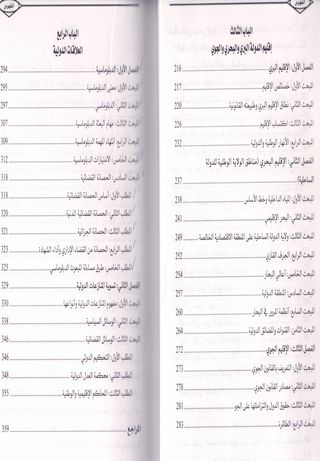 الفهرس
الباب الثالث
إقليم الدولة البري والبحري والجوي
الفصل الأول: الإقليم البري 216
المبحث الأول: خصائص الإقليم 217
المبحث الثاني: نطاق الإقليم البري وطبيعته القانونية 220
المبحث الثالث: اكتساب الإقليم 226
المبحث الرابع: الأنهار الوطنية والدولية 232
الفصل الثاني: الإقليم البحري (مناطق الولاية الوطنية للدولة
الساحلية) 237
المبحث الأول: المياه الداخلية وخط الأساس 238
المبحث الثاني: البحر الإقليمي 241
المبحث الثالث: ولاية الدولة الساحلية على المنطقة الاقتصادية الخالصة 249
المبحث الرابع: الجرف القاري 252
المبحث الخامس: أعالي البحار 254
المبحث السادس: المنطقة الدولية 257
المبحث السابع: أنظمة المرور في البحار 260
المبحث الثامن: القنوات والمضائق الدولية 264
الفصل الثالث: الإقليم الجوي 272
المبحث الأول: التعريف بالقانون الجوي 273
المبحث الثاني: مصادر القانون الجوي 278
المبحث الثالث: حقوق الدول والتزاماتها على الجو 281
المبحث الرابع: الطائرة 283
الفهرس
الباب الرابع
العلاقات الدولية
الفصل الأول: الدبلوماسية 294
المبحث الأول: معنى الدبلوماسية 295
المبحث الثاني: الدبلوماسي 297
المبحث الثالث: مهام البعثة الدبلوماسية 307
المبحث الرابع: انتهاء المهمة الدبلوماسية 309
المبحث الخامس: الامتيازات الدبلوماسية 312
المبحث السادس: الحصانة القضائية 318
المطلب الأول: أساس الحصانة القضائية 318
المطلب الثاني: الحصانة القضائية المدنية 320
المطلب الثالث: الحصانة الجزائية 321
المطلب الرابع: الحصانة من القضاء الإداري وأداء الشهادة 323
المطلب الخامس: طرق مساءلة المبعوث الدبلوماسي 325
الفصل الثاني: تسوية المنازعات الدولية 329
المبحث الأول: مفهوم المنازعات الدولية وأنواعها 330
المبحث الثاني: الوسائل السياسية 338
المبحث الثالث: الوسائل القضائية 346
المطلب الأول: التحكيم الدولي 346
المطلب الثاني: محكمة العدل الدولية 348
المطلب الثالث: المحاكم الإقليمية والوطنية 355
المراجع 359